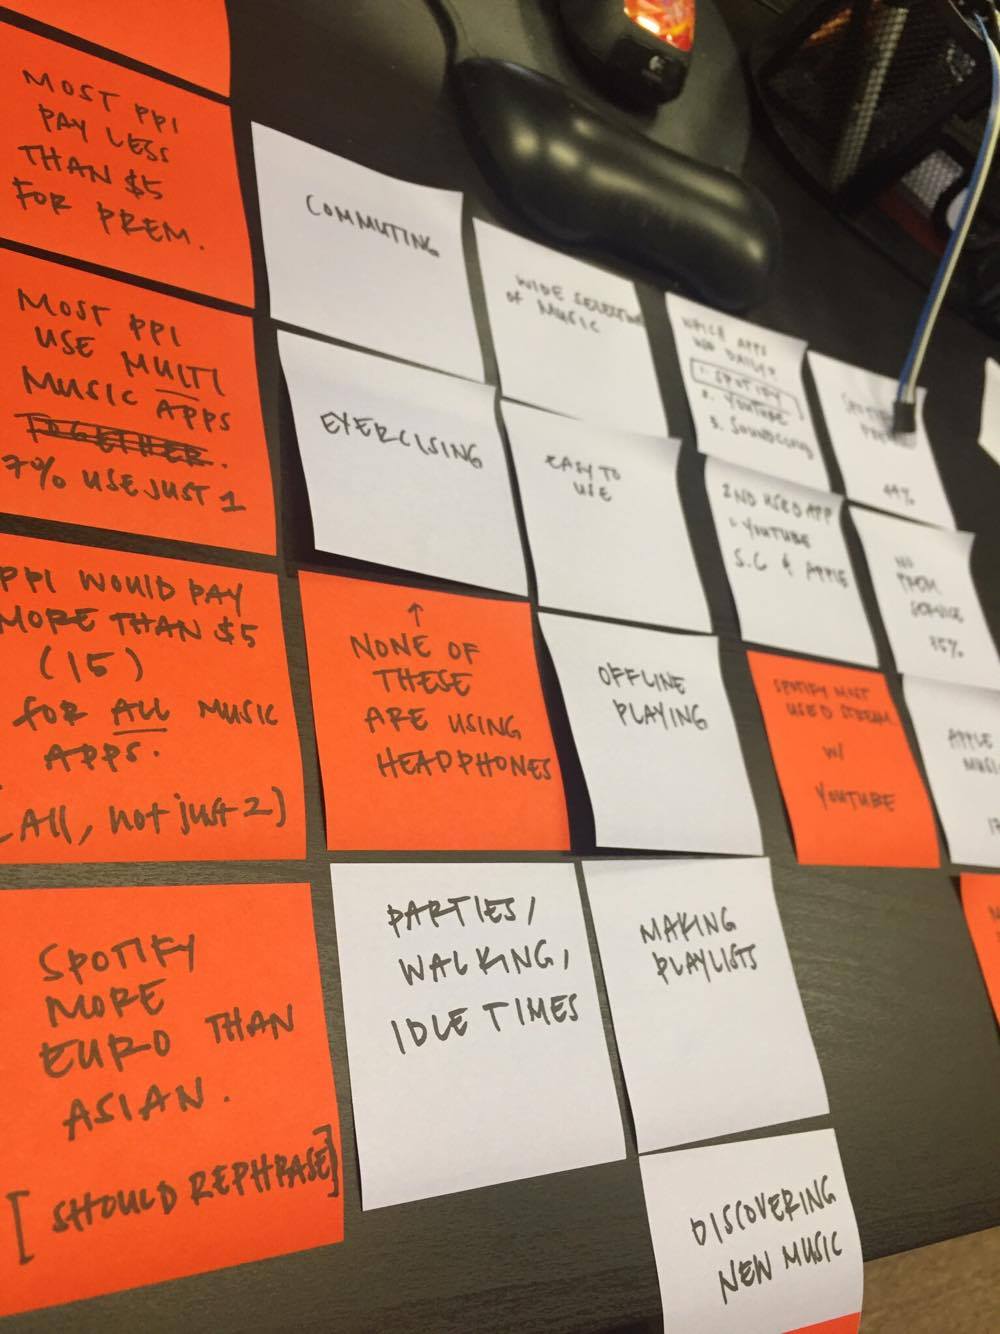 MOST PPI
PAY LESS
THAN $5
FOR PREM.
MOST PPI
USE MULTI
MUSIC APPS
TOGETHER.
7% USE JUST 1
PPI WOULD PAY
MORE THAN $5
(15)
for ALL MUSIC
APPS.
(All, not just 2)
SPOTIFY
MORE
EURO THAN
ASIAN.
[SHOULD REPHRASE]
COMMUTING
EXERCISING
↑
NONE OF
THESE
ARE USING
HEADPHONES
PARTIES/
WALKING,
IDLE TIMES
WIDE SELECTION
of MUSIC
EASY TO
USE
OFFLINE
PLAYING
MAKING
PLAYLISTS
DISCOVERING
NEW MUSIC
WHICH APPS
DAILY?
1. SPOTIFY
2. YOUTUBE
3. SOUNDCLOUD
2ND USED APP
YOUTUBE
S.C & APPLE
SPOTIFY MOST
USED STREAM
W/
YOUTUBE
44%
NO
PREM
SERVICE
35%
APPLE